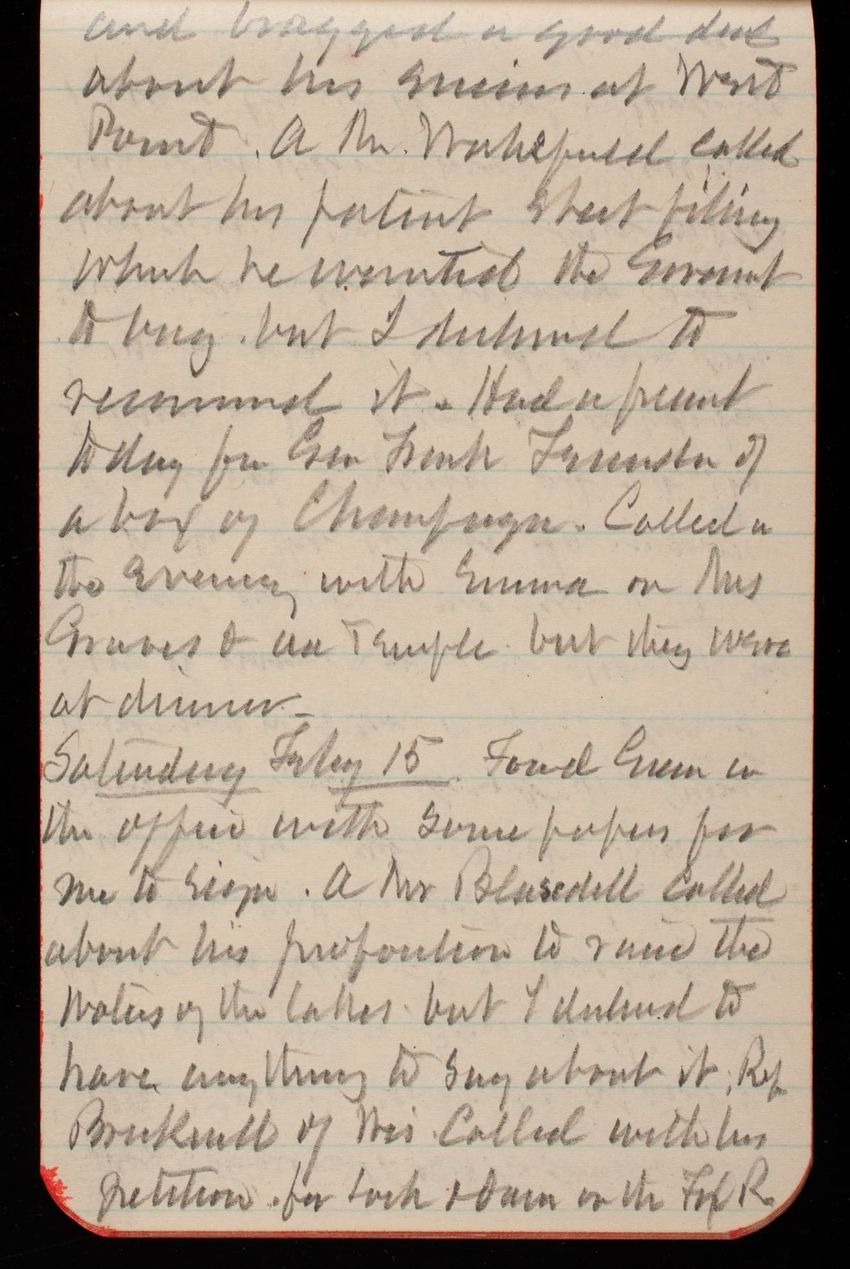 and bragged a good deal
about his success at West
Point. A Mr. Wakefield called
about his patent sheet piling
which he wanted the Governmt
to buy. but I declined to
recommend it. Had a present
today from Gen Frank of
a box of Champagne. Called in
the evening with Emma on Mrs
Graves & Temple but they were
at dinner -
Saturday Feby 15. Found Green in
the office with some papers for
me to sign. A Mr Blasedell called
about his proposition to raise the
waters of the lakes. but I declined to
have anything to say about it. Rep
Brickwell of Wis. Called with his
petition for lock & dam on the Fox R.